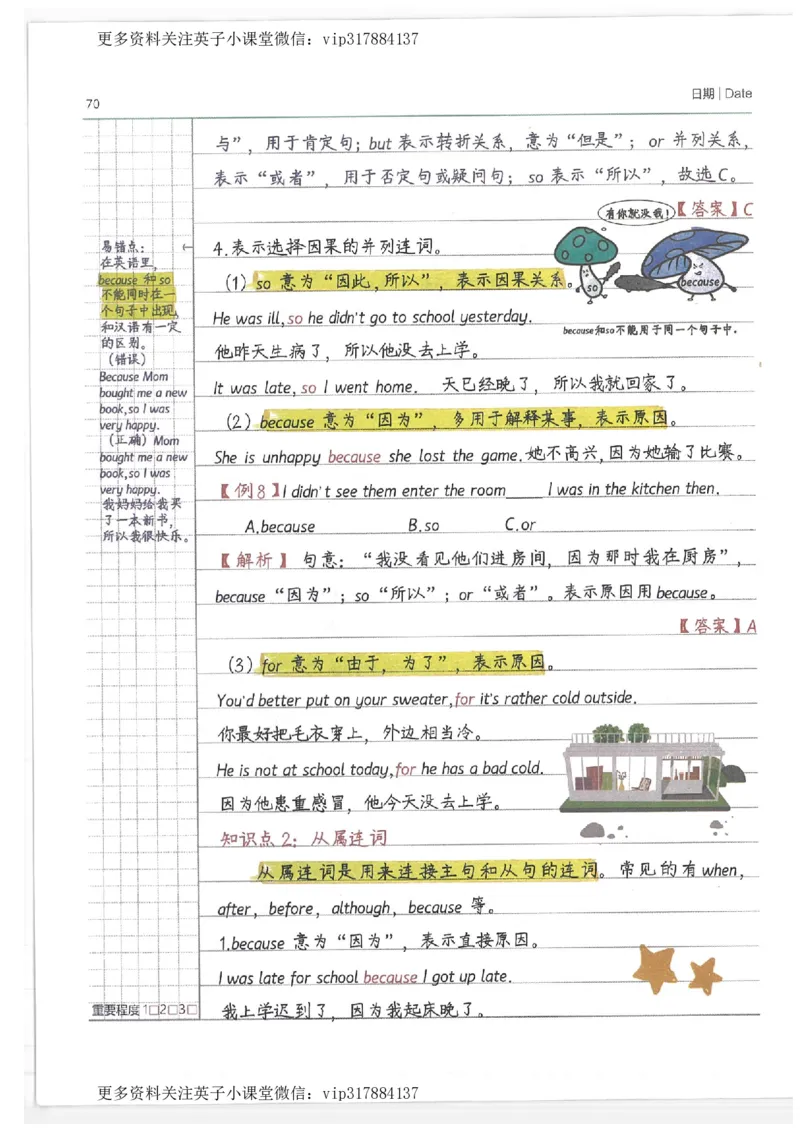 更多资料关注英子小课堂微信：vip317884137
日期 | Date
70
与”，用于肯定句；but 表示转折关系，意为“但是”；or 并列关系，
表示“或者”，用于否定句或疑问句；so 表示“所以”，故选 C。
有你就没我！
【答案】C
易错点：
在英语里，
because 和 so
不能同时在一
个句子中出现，
和汉语有一定
的区别。
（错误）
Because Mom
bought me a new
book,so I was
very happy.
（正确）Mom
bought me a new
book,so I was
very happy.
我妈妈给我买
了一本新书，
所以我很快乐。
←
4.表示选择因果的并列连词。
（1）so 意为“因此，所以”，表示因果关系。
so
because
He was ill,so he didn't go to school yesterday.
because和so不能用于同一个句子中.
他昨天生病了，所以他没去上学。
It was late, so I went home. 天已经晚了，所以我就回家了。
（2）because 意为“因为”，多用于解释某事，表示原因。
She is unhappy because she lost the game.她不高兴，因为她输了比赛。
【例8】I didn't see them enter the room____ I was in the kitchen then.
A.because B.so C.or
【解析】句意：“我没看见他们进房间，因为那时我在厨房”，
because“因为”；so“所以”；or“或者”。表示原因用because。
【答案】A
（3）for 意为“由于，为了”，表示原因。
You'd better put on your sweater,for it's rather cold outside.
你最好把毛衣穿上，外边相当冷。
He is not at school today,for he has a bad cold.
因为他患重感冒，他今天没去上学。
知识点2：从属连词
从属连词是用来连接主句和从句的连词。常见的有when，
after，before，although，because 等。
1.because 意为“因为”，表示直接原因。
I was late for school because I got up late.
我上学迟到了，因为我起床晚了。
重要程度 1□2□3□
更多资料关注英子小课堂微信：vip317884137